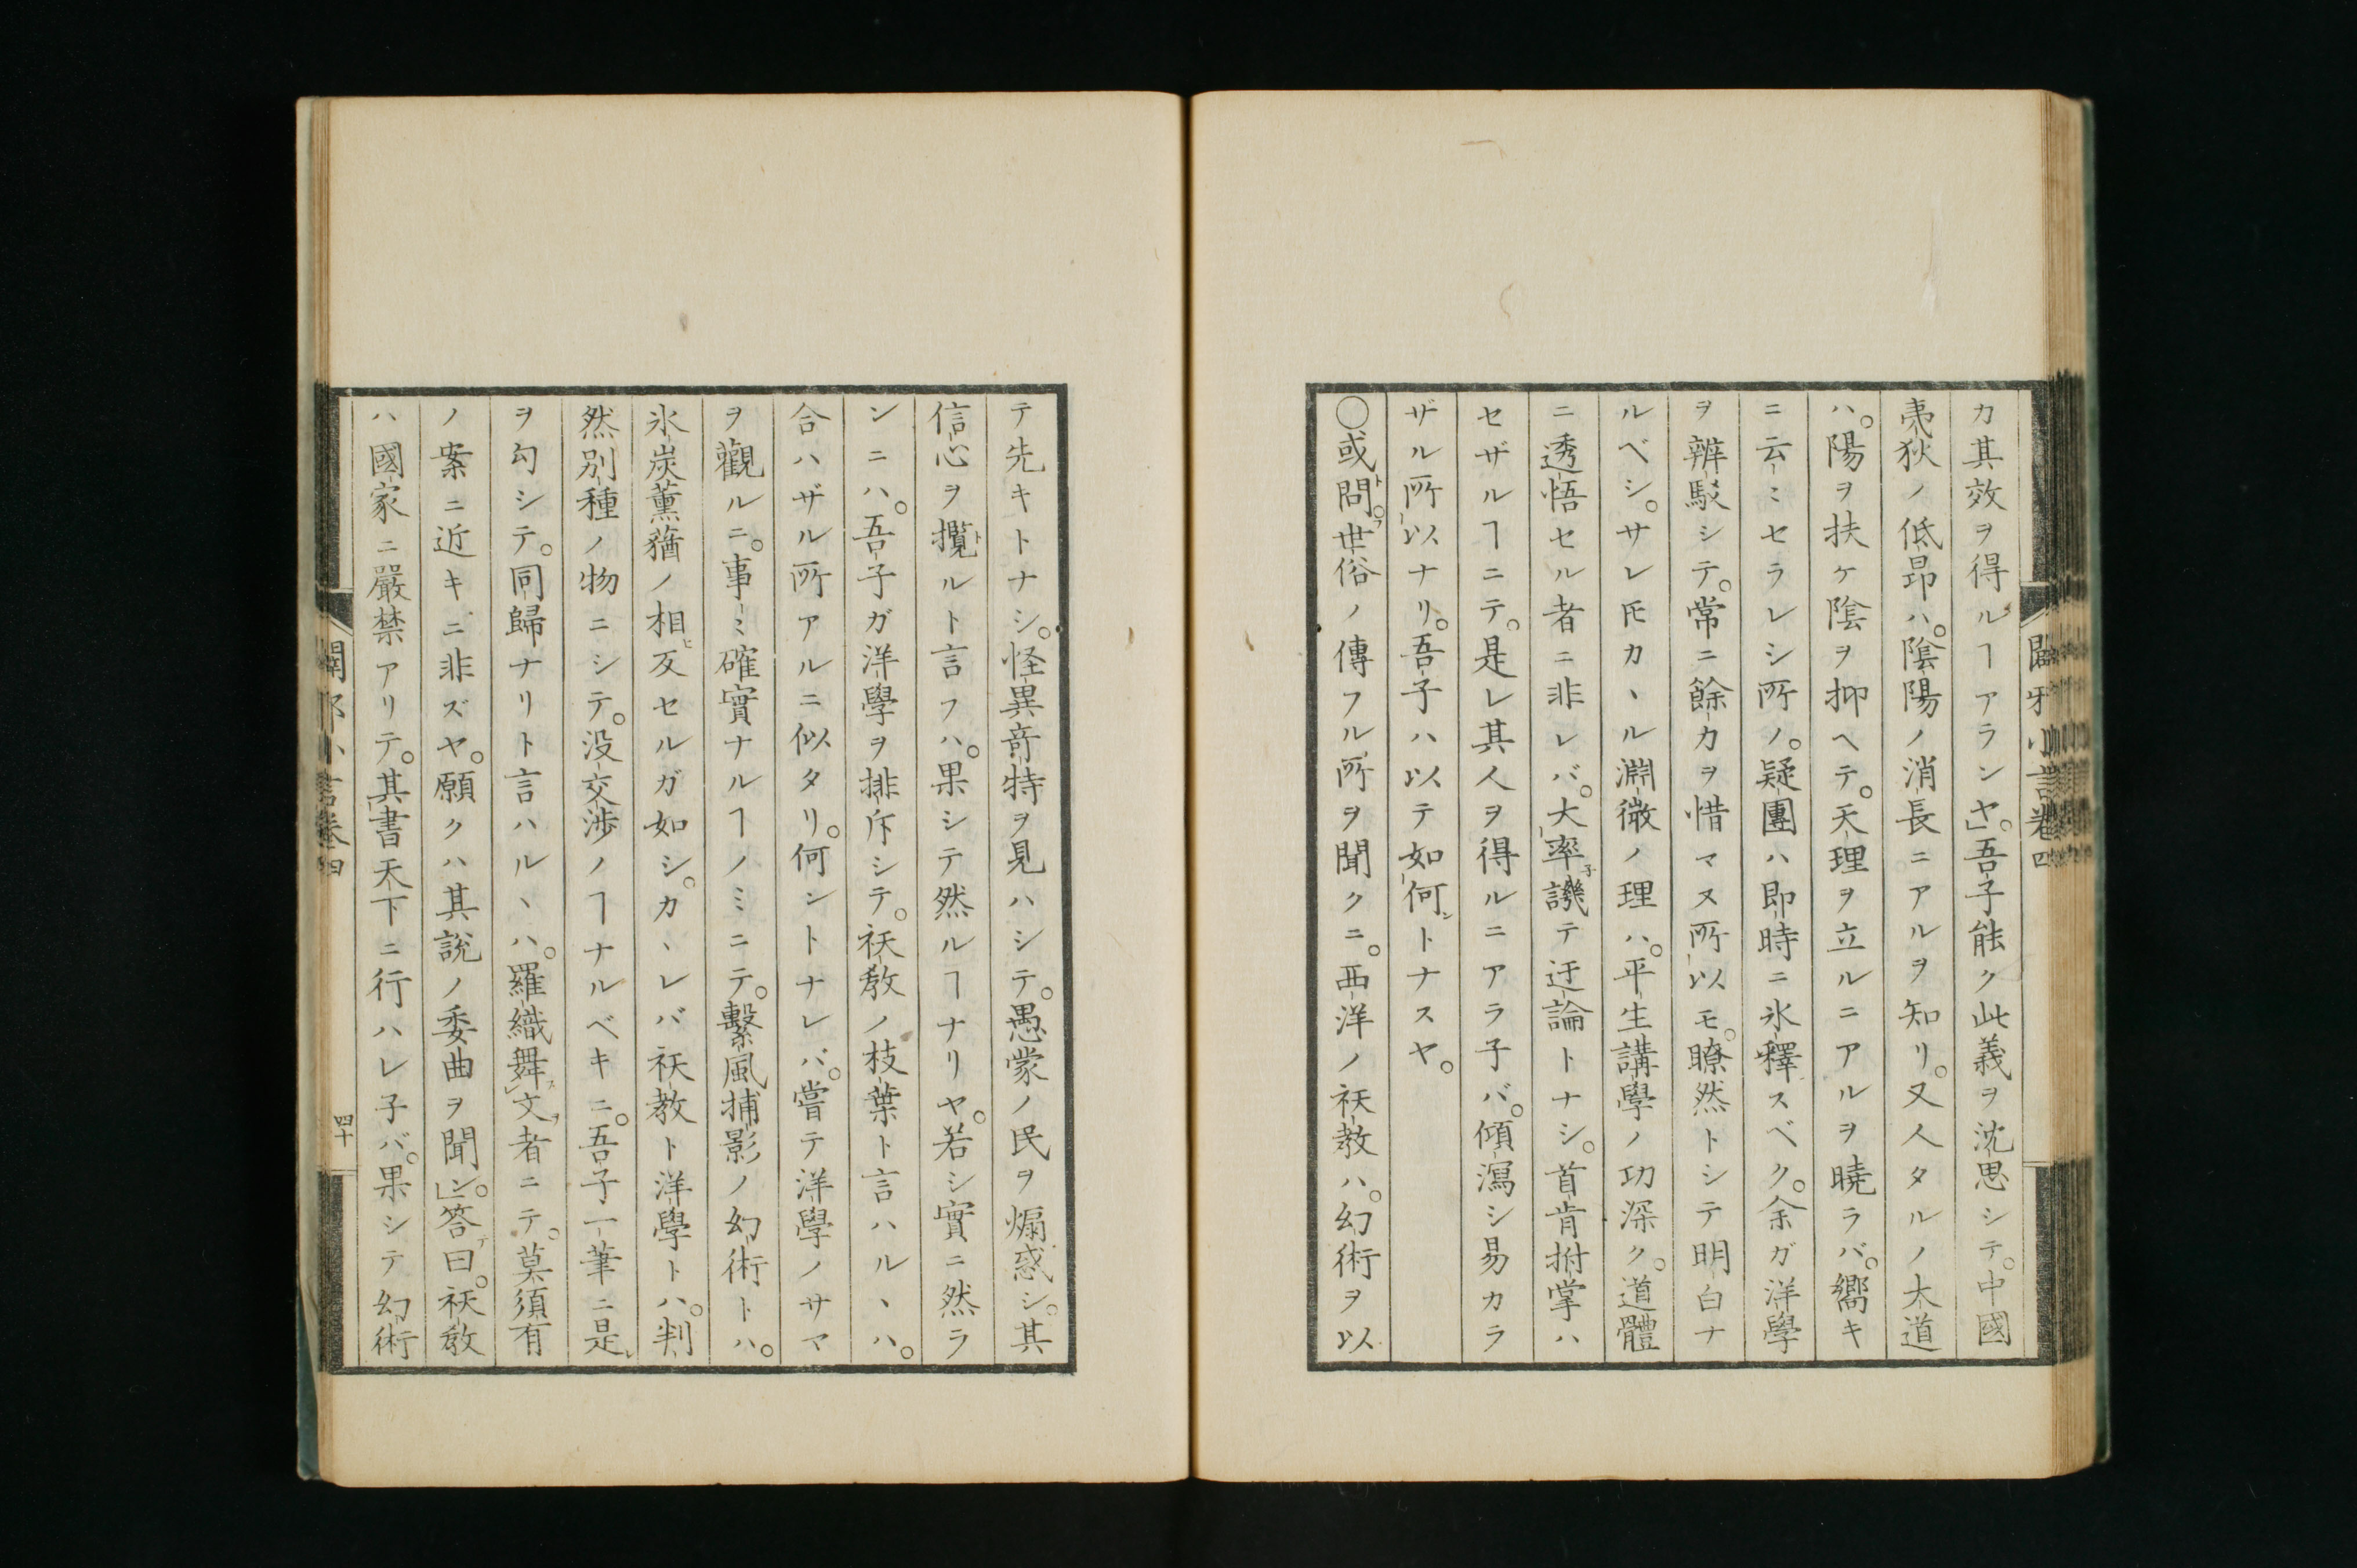 カ其效ヲ得ルヿアランヤ。」吾子能ク此義ヲ沈思シテ。中國
夷狄ノ低昂ハ。陰陽ノ消長ニアルヲ知リ。又人タルノ大道
ハ。陽ヲ扶ケ陰ヲ抑ヘテ。天理ヲ立ルニアルヲ曉ラバ。嚮キ
ニ云ミセラレシ所ノ。疑團ハ即時ニ氷釋スベク。余ガ洋學
ヲ辨駁シテ。常ニ餘力ヲ惜マヌ所以モ。瞭然トシテ明白ナ
ルベシ。サレ𪜈カヽル淵微ノ理ハ。平生講學ノ功深ク。道體
ニ透悟セル者ニ非レバ。大率譏テ迂論トナシ。首肯拊掌ハ
セザルヿニテ。是レ其人ヲ得ルニアラ子バ。傾瀉シ易カラ
ザル所以ナリ。吾子ハ以テ如何ントナスヤ。
○或問。世俗ノ傳フル所ヲ聞クニ。西洋ノ祅教ハ。幻術ヲ以
テ先キトナシ。怪異竒特ヲ見ハシテ。愚蒙ノ民ヲ煽惑シ。其
信心ヲ攬ルト言フハ。果シテ然ルヿナリヤ。若シ實ニ然ラ
ンニハ。吾子ガ洋學ヲ排斥シテ。祅教ノ枝葉ト言ハルヽハ。
合ハザル所アルニ似タリ。何ントナレバ。嘗テ洋學ノサマ
ヲ觀ルニ。事ミ確實ナルヿノミニテ。繫風捕影ノ幻術トハ。
氷炭薰蕕ノ相反セルガ如シ。カヽレバ祅教ト洋學トハ。判
然別種ノ物ニシテ。没交渉ノヿナルベキニ。吾子一筆ニ是
ヲ勾シテ。同歸ナリト言ハルヽハ。羅織舞文者ニテ。莫須有
ノ案ニ近キニ非ズヤ。願クハ其說ノ委曲ヲ聞ン。」答曰。祅教
ハ國家ニ嚴禁アリテ。其書天下ニ行ハレ子バ。果シテ幻術
闢邪小言卷四
四十